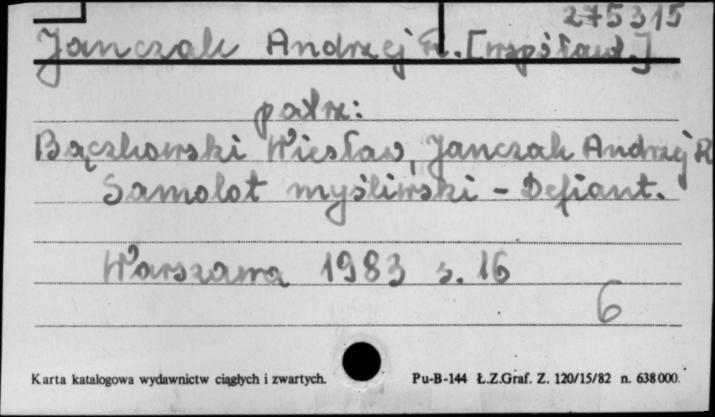 275315
Janczak Andrzej R. [współaut.]
patrz:
Bączkowski Wiesław, Janczak Andrzej R
Samolot myśliwski - Defiant.
Warszawa 1983 s. 16
6
Karta katalogowa wydawnictw ciągłych i zwartych. Pu-B-144 Ł.Z.Graf. Z. 120/15/82 n. 638000.